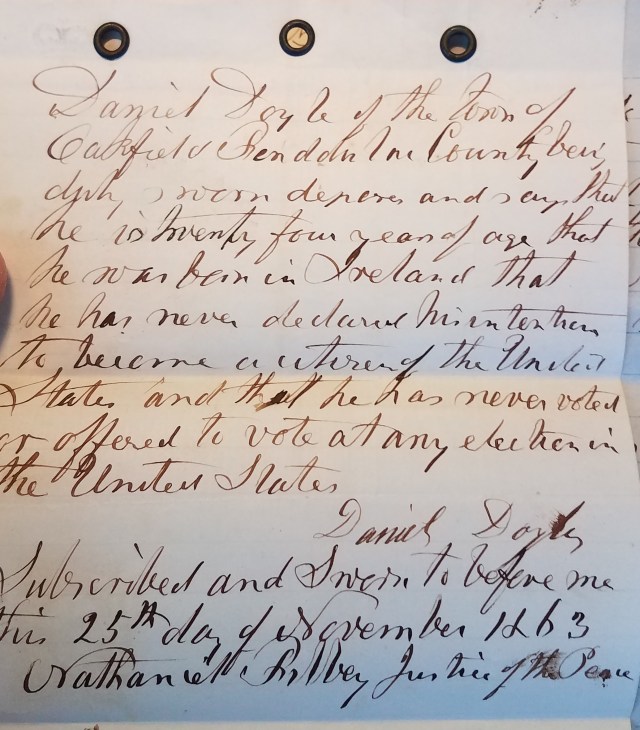 Daniel Doyle of the town of
Oakfield Fond du lac County being
duly sworn deposes and says that
he is twenty four years of age that
he was born in Ireland that
he has never declared his intention
to become a citizen of the United
States and that he has never voted
or offered to vote at any election in
the United States
Daniel Doyle
Subscribed and Sworn to before me
this 25th day of November 1863
Nathaniel Justice of the Peace